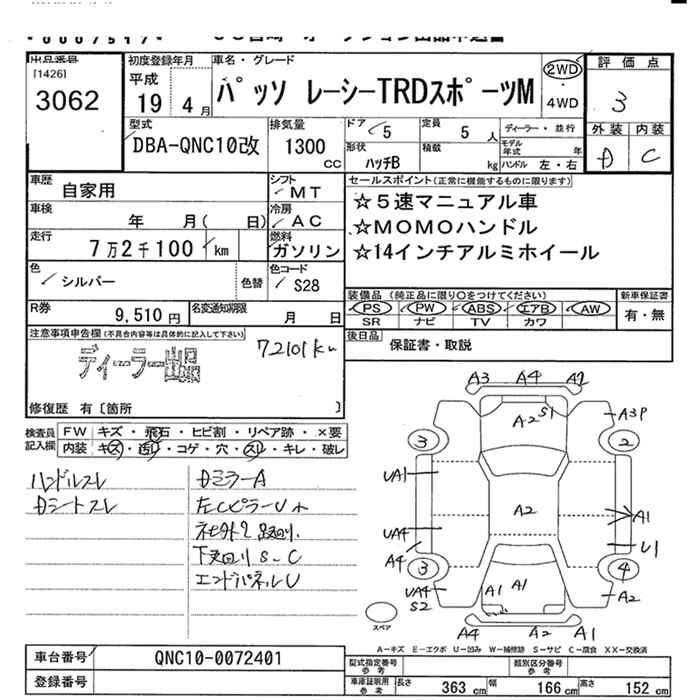 出品番号
[1426]
3062
初度登録年月
平成
19 4月
車名・グレード
パッソ レーシーTRDスポーツM
2WD
・
4WD
評価点
3
外装 内装
D C
型式
DBA-QNC10改
排気量
1300
CC
ドア
5
定員
5 人
形状
ハッチB
積載
kg
ディーラー・並行
モデル年式 年
ハンドル 左・右
車歴
自家用
シフト
MT
車検
年 月( 日)
冷房
AC
走行
7万2千100 km
燃料
ガソリン
色
シルバー
色替
色コード
S28
R券
9,510円
名変通知期限
月 日
セールスポイント(正常に機能するものに限ります)
☆5速マニュアル車
☆MOMOハンドル
☆14インチアルミホイール
装備品 (純正品に限り○をつけてください)
PS PW ABS エアB AW
SR ナビ TV カワ
新車保証書
有・無
後日品
保証書・取説
注意事項申告欄(不具合内容等は具体的に記入して下さい)
ディーラー出品
72101km
修復歴 有〔箇所 〕
検査員
記入欄
FW キズ・飛石・ヒビ割・リペア跡・×要
内装 キズ・汚レ・コゲ・穴・スレ・キレ・破レ
ハンドルスレ
Dシートスレ
DミラーA
左CピラーU小
下廻りS、C
エンドパネルU
A3 A4 A2
A-2 S1
A3P
3 2
UA1
A2
A1
UA4
U1
A4
3 4
UA4
S2
A1 A1 A1
A2
A4 A2 A1
スペア
A－キズ E－エクボ U－凹み W－補修跡 S－サビ C－腐食 XX－交換済
車台番号
QNC10-0072401
登録番号
型式指定番号
参考
類別区分番号
参考
車庫証明用
参考
長さ 363 cm
幅 166 cm
高さ 152 cm